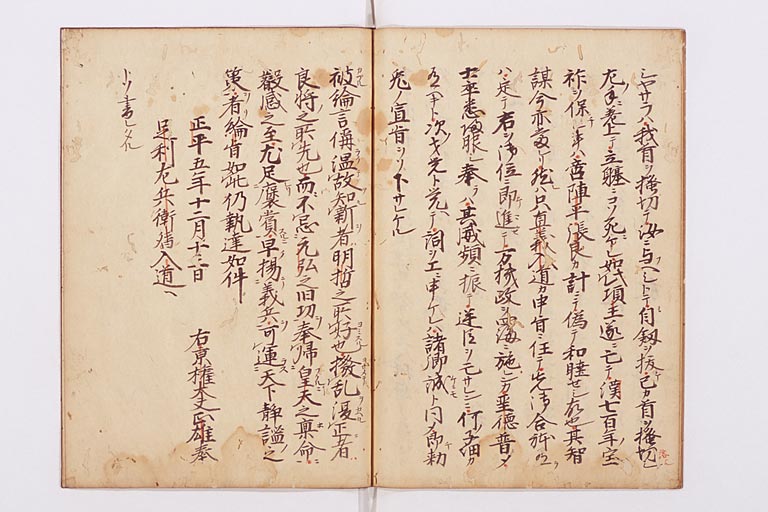 シヤサラハ我首ヲ掻切テ汝ニ与ヘシトテ自剱ヲ抜己カ首ヲ掻切
左ノ手ニ差上テ立軀ニコソ死タレ如此項王遂ニ亡テ漢七百年ノ宝
祚ヲ保シ事ハ陳平張良カ計ニテ偽テ和睦セシ故也其智
謀今亦当レリ然ハ只恵源入道カ申旨ニ任テ先御合躰
ハ定テ君ヲ御位ニ即進テ万機政ヲ四海ニ施シ聖徳普ク
士卒悉帰服シ奉ラハ其威頻ニ振テ逆臣ヲ亡サンニ何ノ子細カ
有ヘキト次キ先ト覚テ詞ヲ工ニ申ケレハ諸卿誠トト同即勅
免ノ宣旨ヲソ下サレケル
被綸言偁温故知新者明哲之所好也撥乱復正者
良将之所先也而不忘元弘之旧功奉帰皇天之禀命
叡感之至尤足褒賞早揚義兵可運天下静謐之
策者綸旨如此仍執達如件
正平五年十二月十三日 右京権大夫正雄奉
足利左兵衛督入道
トソ書レタル